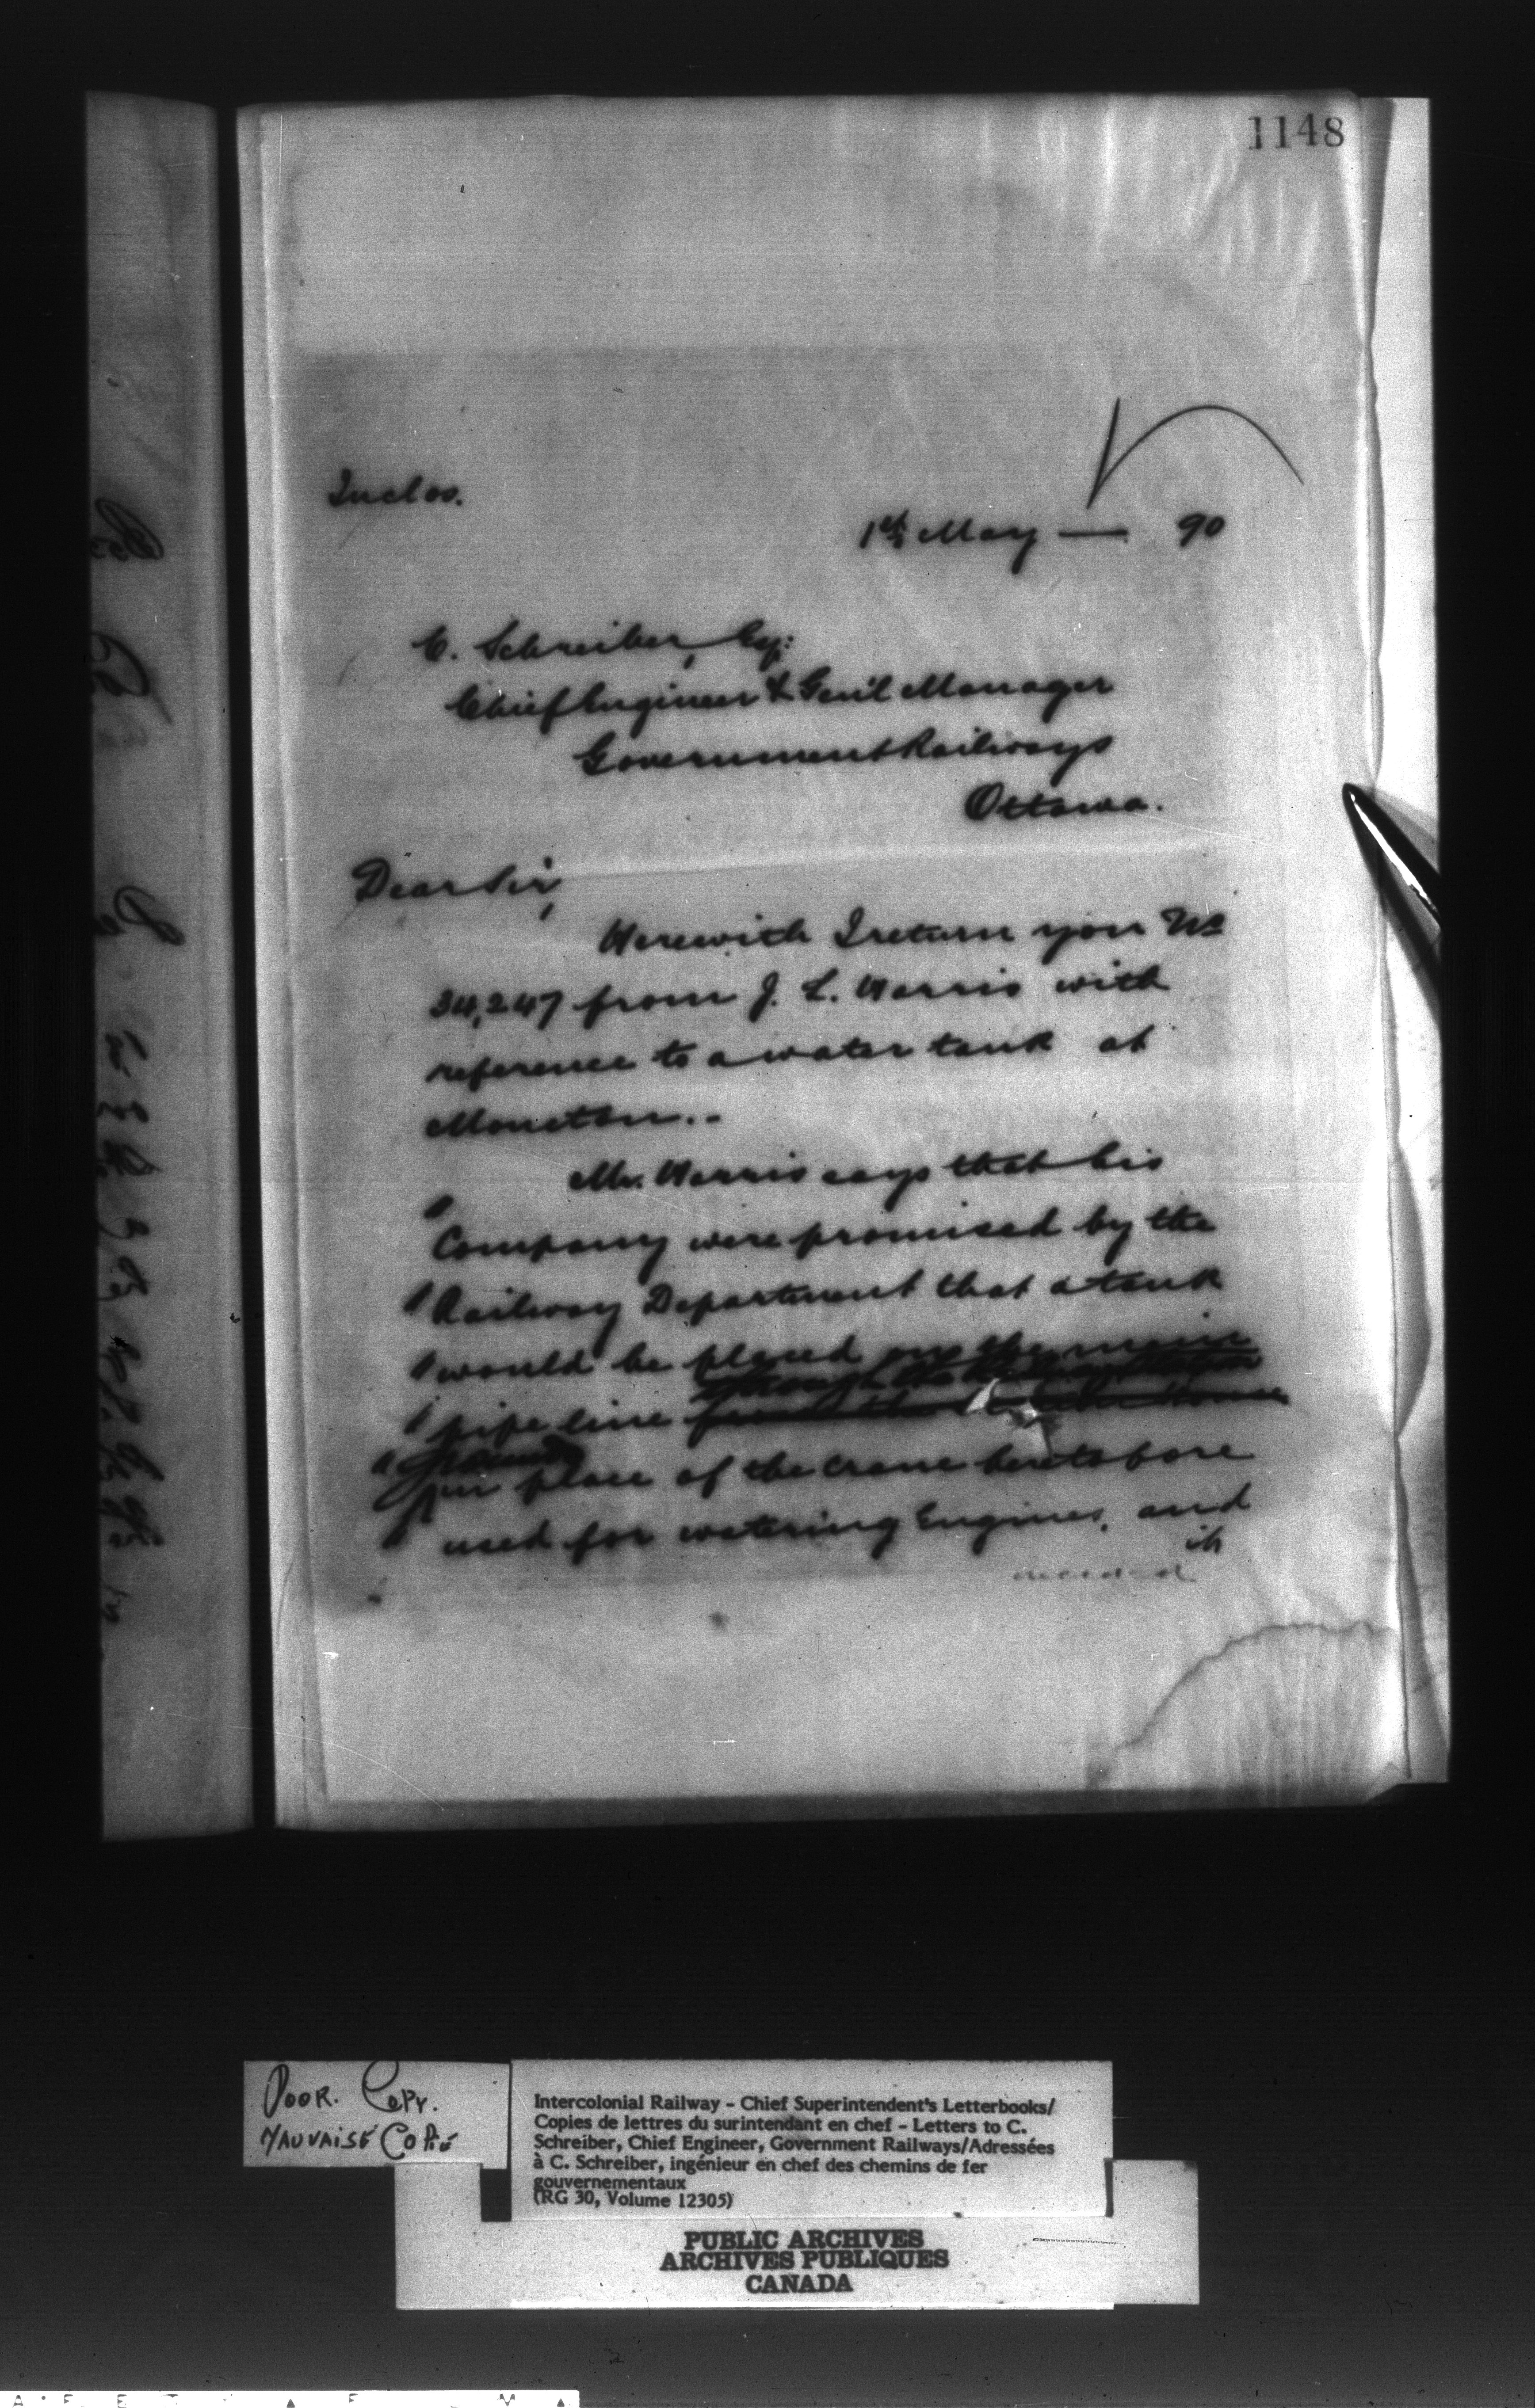 1148
Inclos.
1st May — 90
C. Schreiber, Esq:
Chief Engineer & Gen'l Manager
Government Railways
Ottawa.
Dear Sir,
Herewith I return you No
34,247 from J. L. Harris with
reference to a water tank at
Moncton.-
Mr. Harris says that his
" Company were promised by the
" Railway Department that a tank
" would be placed on the main
" pipe line through the
" grounds
" in place of the crane heretofore
" used for watering Engines, and
it
POOR. COPY.
MAUVAISE COPIE
Intercolonial Railway - Chief Superintendent's Letterbooks/
Copies de lettres du surintendant en chef - Letters to C.
Schreiber, Chief Engineer, Government Railways/Adressées
à C. Schreiber, ingénieur en chef des chemins de fer
gouvernementaux
(RG 30, Volume 12305)
PUBLIC ARCHIVES
ARCHIVES PUBLIQUES
CANADA